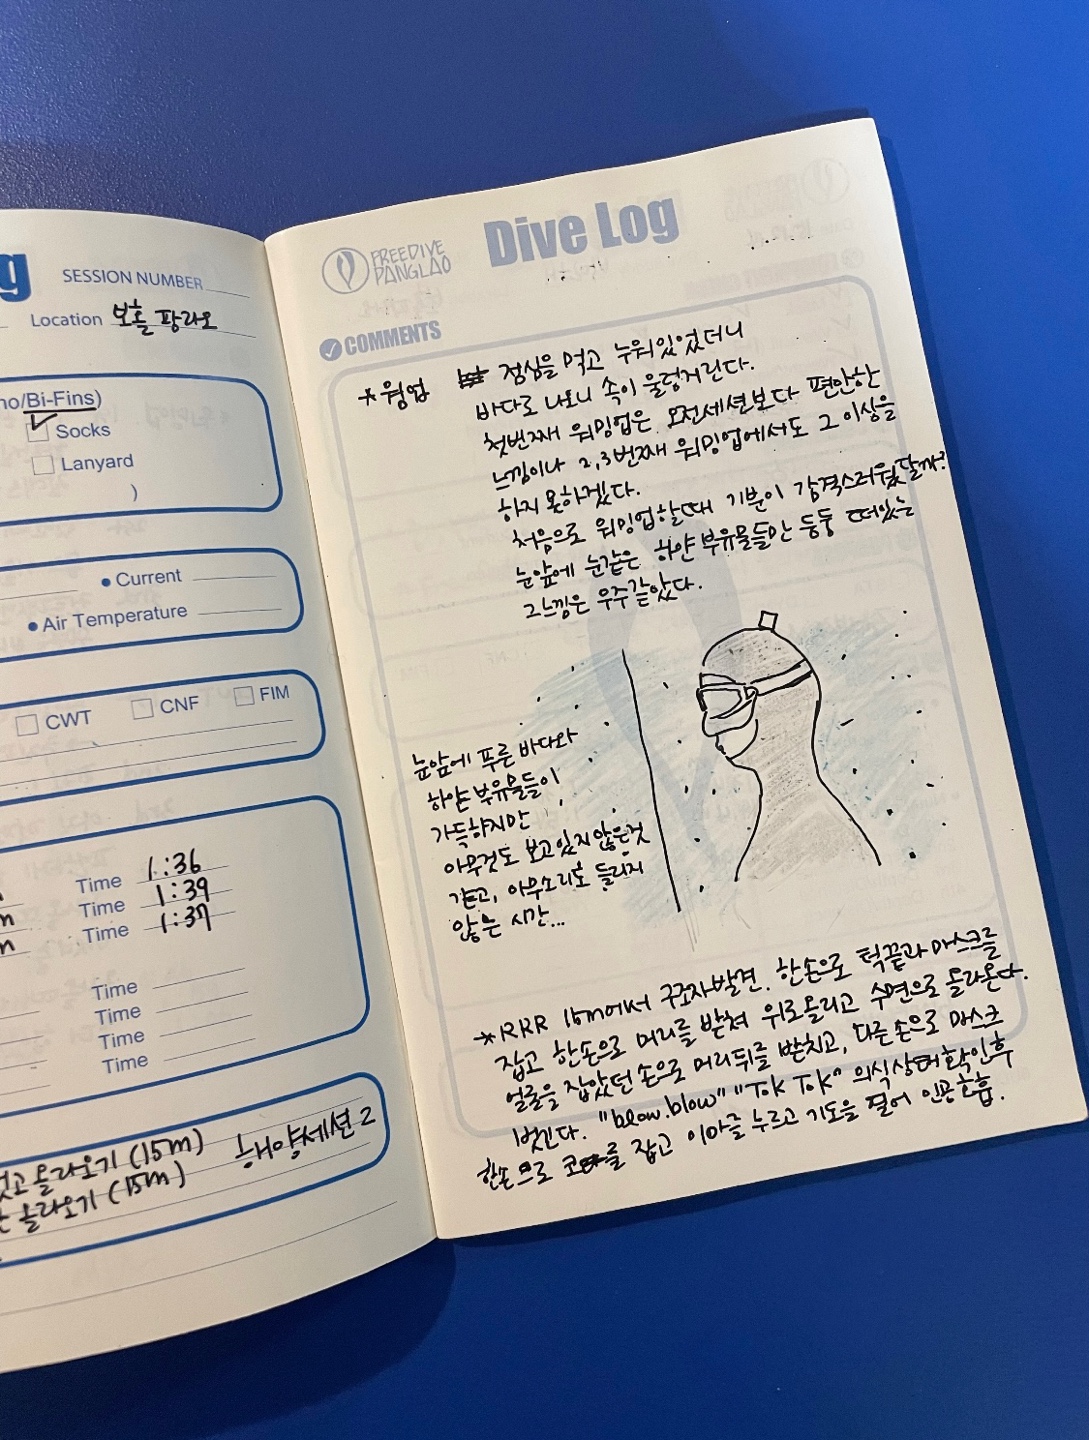 g
SESSION NUMBER
Location 보홀 팡라오
no/Bi-Fins)
Socks
Lanyard
)
Current
Air Temperature
CWT CNF FIM
Time 1:36
m Time 1:39
m Time 1:37
Time
Time
Time
Time
고 올라오기 (15m) 해양세션 2
올라오기 (15m)
FREEDIVE
PANGLAO
Dive Log
COMMENTS
*웜업 점심을 먹고 누워있었더니
바다로 나오니 속이 울렁거린다.
첫번째 워밍업은 오전세션보다 편안한
느낌이나 2,3번째 워밍업에서도 그 이상을
하지 못하겠다.
처음으로 워밍업할때 기분이 감격스러웠달까?
눈앞에 눈같은 하얀 부유물들만 둥둥 떠있는
그느낌은 우주같았다.
눈앞에 푸른 바다와
하얀 부유물들이
가득하지만
아무것도 보고있지않은것
같고, 아무소리도 들리지
않는 시간...
*RRR 15m에서 구조자발견. 한손으로 턱끝과 마스크를
잡고 한손으로 머리를 받쳐 위로올리고 수면으로 올라온다.
얼굴을 잡았던 손으로 머리뒤를 받치고, 다른손으로 마스크
벗긴다. "blow.blow" "Tok Tok" 의식상태확인후
한손으로 코를 잡고 이마를 누르고 기도을 열어 인공호흡.